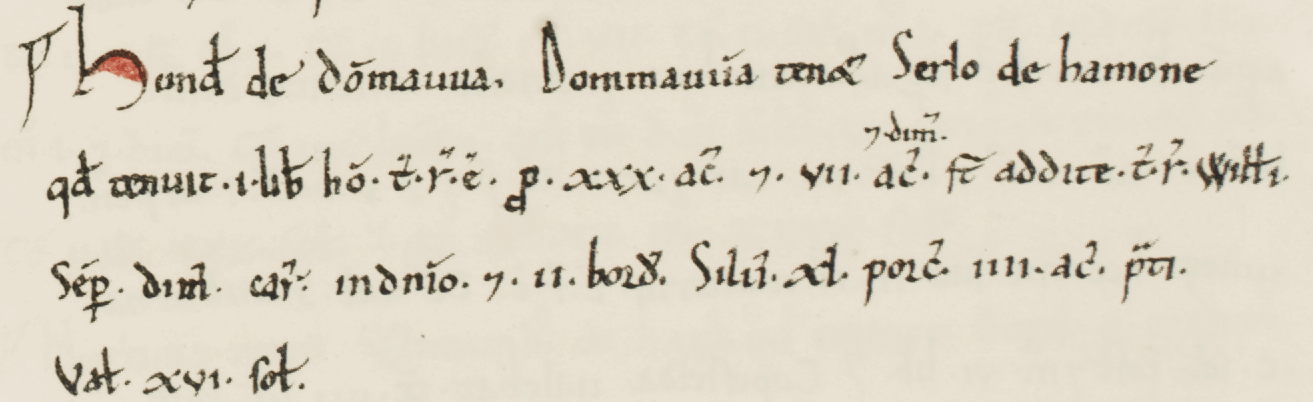 p Hund de dōmauua. Dommauūa tenet Serlo de hamone
⁊ dim̄.
qd tenuit .i. lib hō. t̄. r̄. ē. p. xxx. ac̄. ⁊. vii. ac̄. st̄ addite. t̄. r̄. Willi.
Sēp. dim̄. car̄. indn̄io. ⁊. ii. bord̄. Silū. xl. porc̄. iiii. ac̄. p̄ti.
Val. xvi. sol.